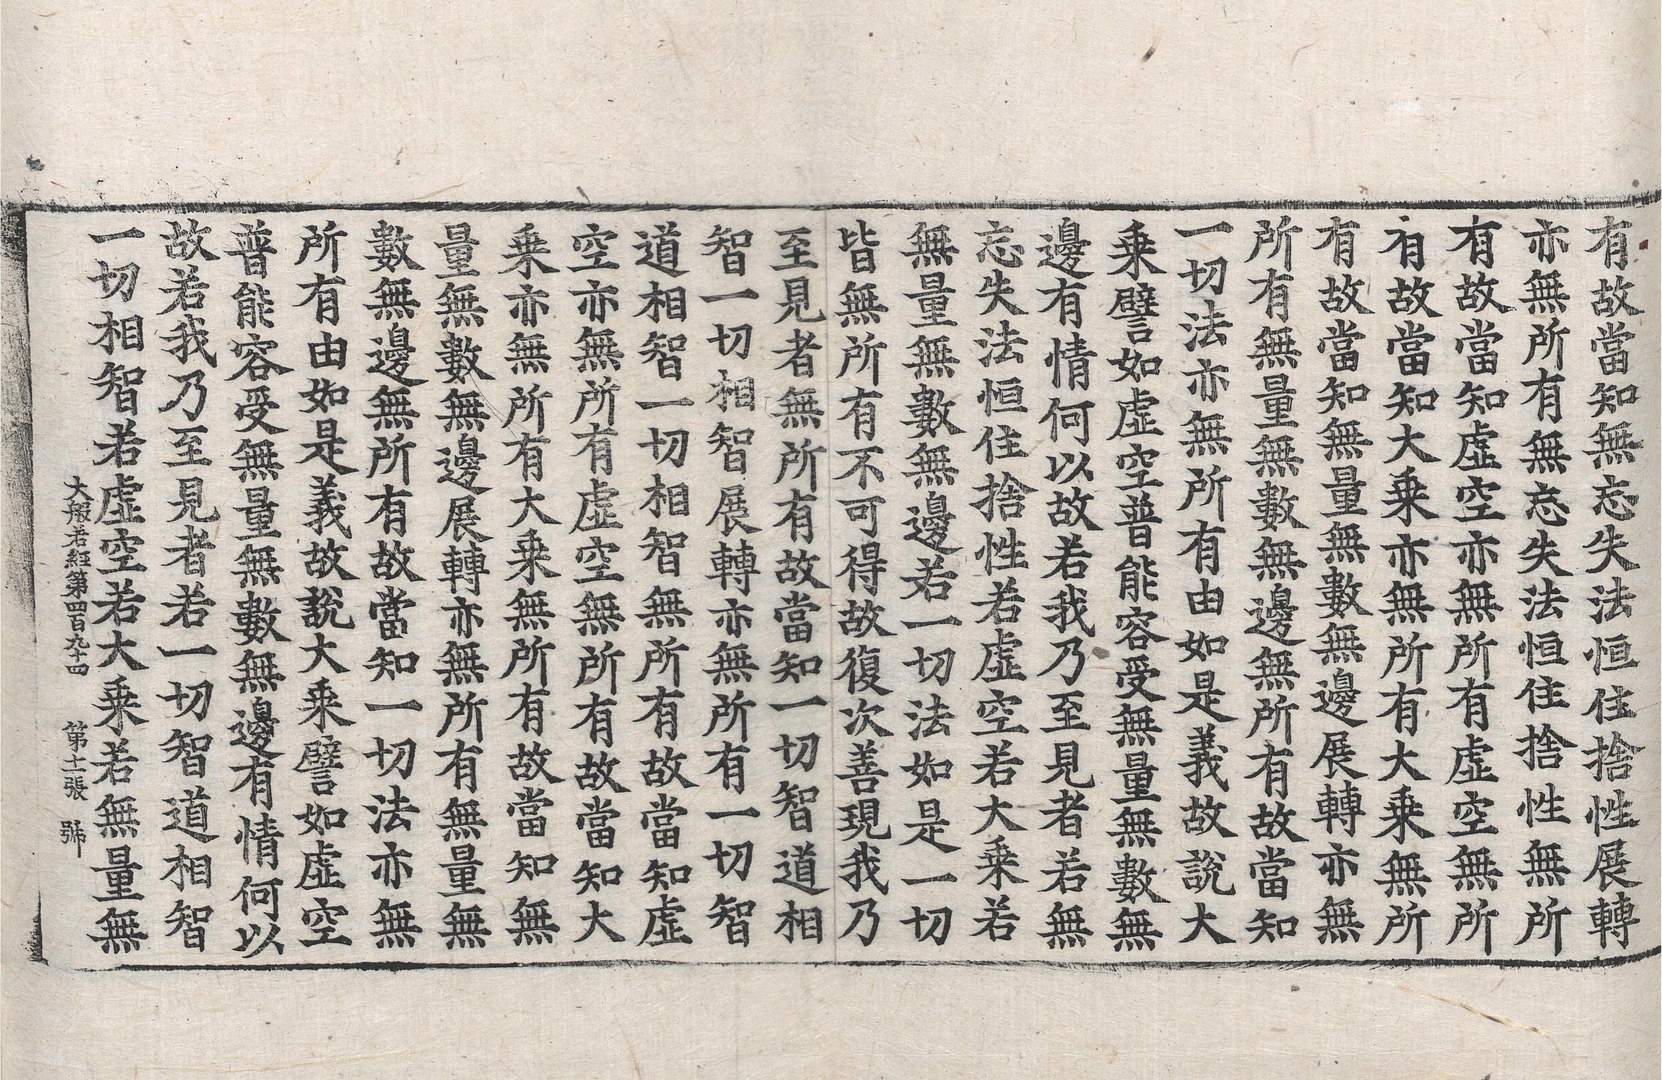 有故當知無忘失法恒住捨性展轉
亦無所有無忘失法恒住捨性無所
有故當知虛空亦無所有虛空無所
有故當知大乘亦無所有大乘無所
有故當知無量無數無邊展轉亦無
所有無量無數無邊無所有故當知
一切法亦無所有由如是義故說大
乘譬如虛空普能容受無量無數無
邊有情何以故若我乃至見者若無
忘失法恒住捨性若虛空若大乘若
無量無數無邊若一切法如是一切
皆無所有不可得故復次善現我乃
至見者無所有故當知一切智道相
智一切相智展轉亦無所有一切智
道相智一切相智無所有故當知虛
空亦無所有虛空無所有故當知大
乘亦無所有大乘無所有故當知無
量無數無邊展轉亦無所有無量無
數無邊無所有故當知一切法亦無
所有由如是義故說大乘譬如虛空
普能容受無量無數無邊有情何以
故若我乃至見者若一切智道相智
一切相智若虛空若大乘若無量無
大般若經第四百九十四 第十一張 號